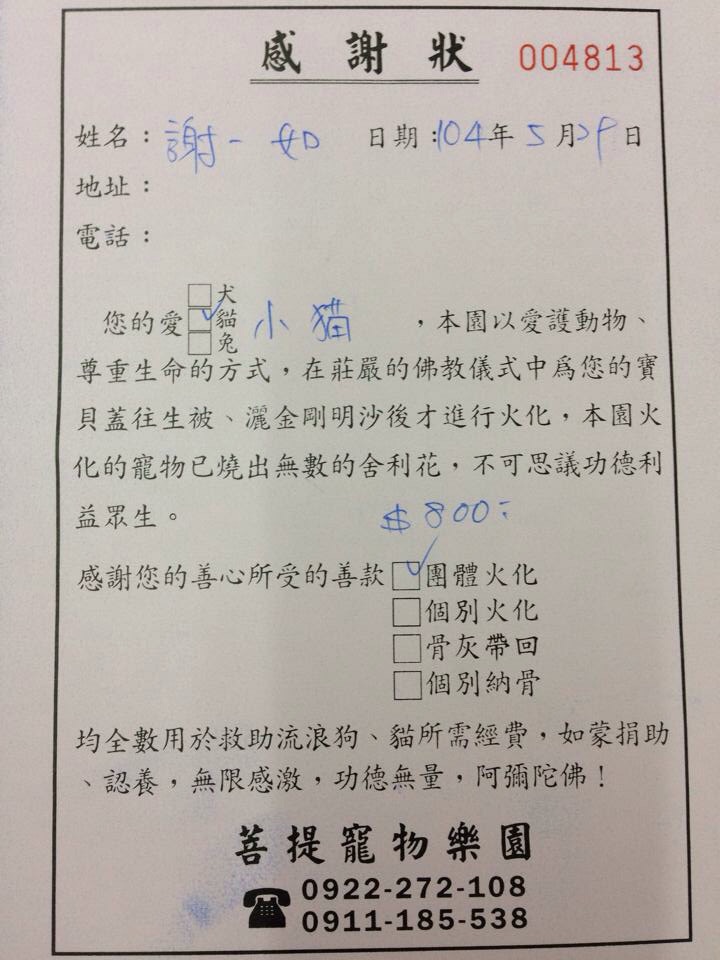 感謝狀 004813
姓名：謝一如 日期：104年5月29日
地址：
電話：
犬
您的愛 貓 小貓 ，本園以愛護動物、
兔
尊重生命的方式，在莊嚴的佛教儀式中爲您的寶
貝蓋往生被、灑金剛明沙後才進行火化，本園火
化的寵物已燒出無數的舍利花，不可思議功德利
益眾生。
$800-
感謝您的善心所受的善款 團體火化
個別火化
骨灰帶回
個別納骨
均全數用於救助流浪狗、貓所需經費，如蒙捐助
、認養，無限感激，功德無量，阿彌陀佛！
菩提寵物樂園
0922-272-108
0911-185-538